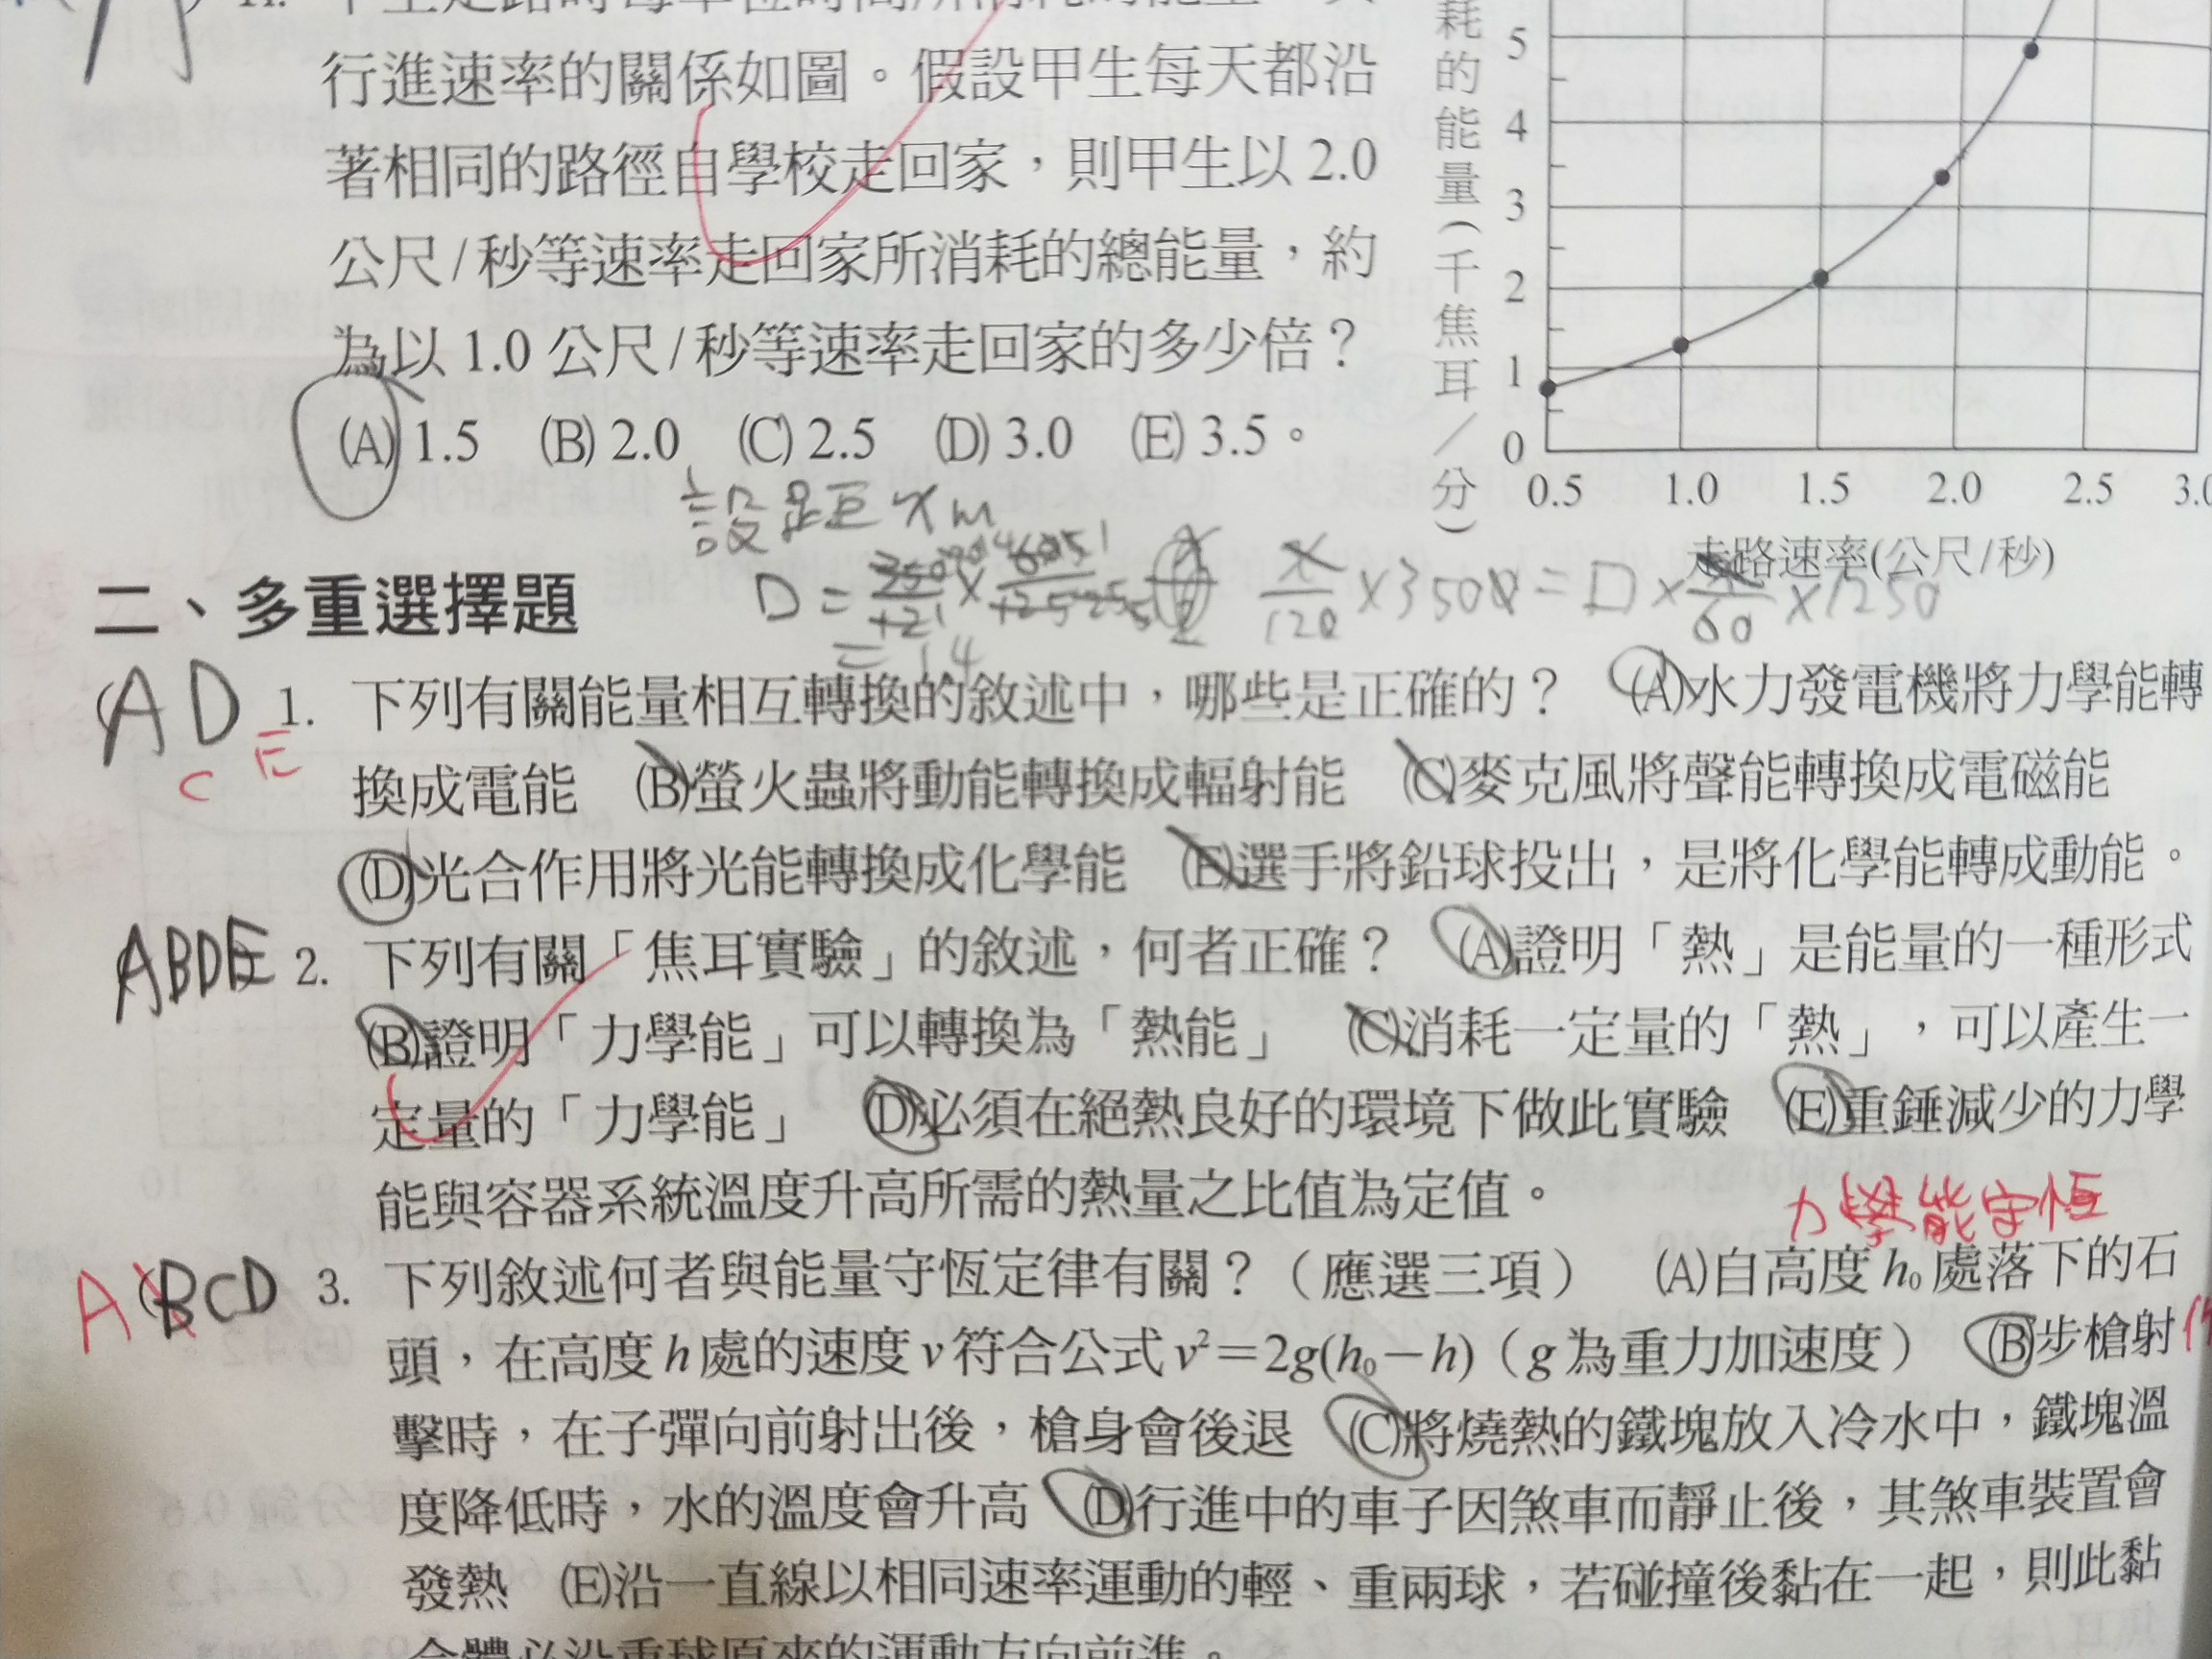 行進速率的關係如圖。假設甲生每天都沿
著相同的路徑自學校走回家，則甲生以 2.0
公尺/秒等速率走回家所消耗的總能量，約
為以 1.0 公尺/秒等速率走回家的多少倍？
(A) 1.5 (B) 2.0 (C) 2.5 (D) 3.0 (E) 3.5。
耗的能量(千焦耳／分)
5
4
3
2
1
0
0.5 1.0 1.5 2.0 2.5
走路速率(公尺/秒)
設 距 x m
x/120 × 3500 = □ × x/60 × 1250
= 1.4
二、多重選擇題
AD
C E
1. 下列有關能量相互轉換的敘述中，哪些是正確的？ (A)水力發電機將力學能轉
換成電能 (B)螢火蟲將動能轉換成輻射能 (C)麥克風將聲能轉換成電磁能
(D)光合作用將光能轉換成化學能 (E)選手將鉛球投出，是將化學能轉成動能。
ABDE
2. 下列有關「焦耳實驗」的敘述，何者正確？ (A)證明「熱」是能量的一種形式
(B)證明「力學能」可以轉換為「熱能」 (C)消耗一定量的「熱」，可以產生一
定量的「力學能」 (D)必須在絕熱良好的環境下做此實驗 (E)重錘減少的力學
能與容器系統溫度升高所需的熱量之比值為定值。
力學能守恆
A BCD
3. 下列敘述何者與能量守恆定律有關？（應選三項） (A)自高度 h₀ 處落下的石
頭，在高度 h 處的速度 v 符合公式 v²＝2g(h₀－h)（g 為重力加速度） (B)步槍射
擊時，在子彈向前射出後，槍身會後退 (C)將燒熱的鐵塊放入冷水中，鐵塊溫
度降低時，水的溫度會升高 (D)行進中的車子因煞車而靜止後，其煞車裝置會
發熱 (E)沿一直線以相同速率運動的輕、重兩球，若碰撞後黏在一起，則此黏
合體必沿重球原來的運動方向前進。